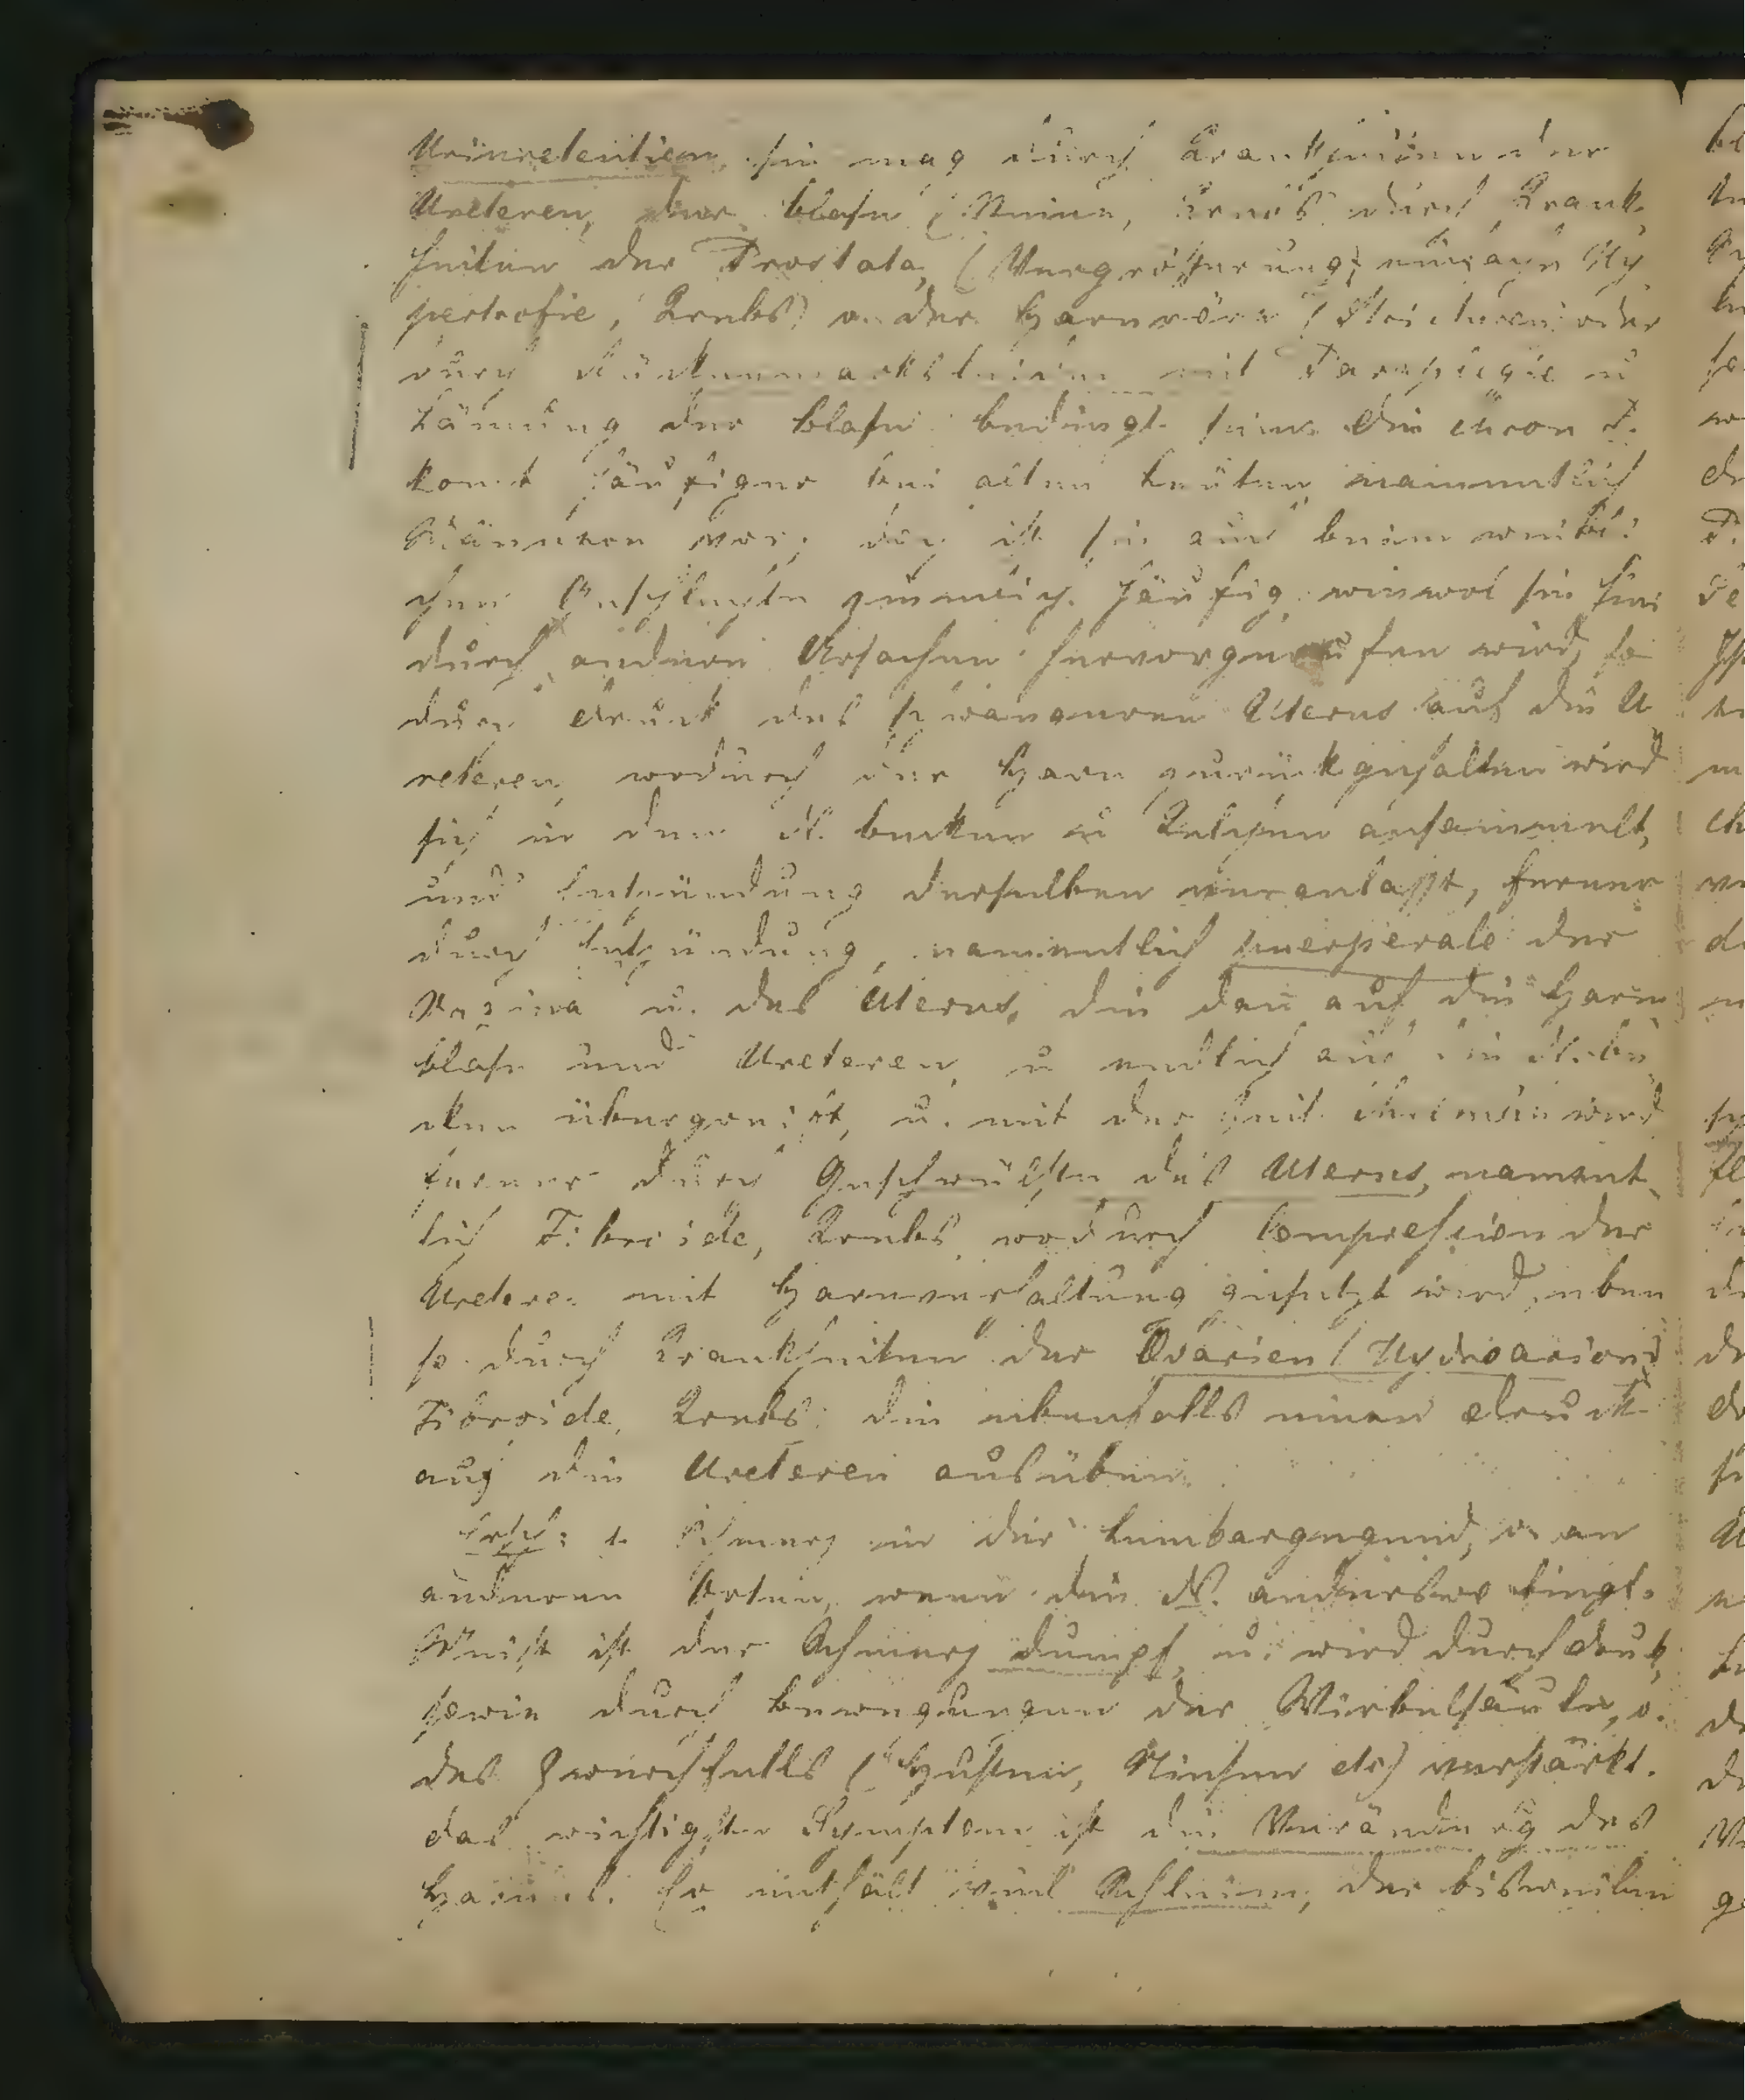 Urinretention, sie mag durch Krankheiten der
Ureteren, der Blase (Steine, Krebs) durch Krank-
heiten der Prostata, (Vergrößerung, einfache Hy-
pertrofie, Krebs) o. der Harnröre (Stricturen) oder
durch Rückenmarksleiden mit Paraplegie u
Lämung der Blase bedingt sein. Die chron P.
komt häufiger bei alten Leuten namentlich
Männern vor; doch ist sie auch beim weibli-
chen Geschlechte ziemlich häufig, wiewol sie hier
durch andere Ursachen hervorgerufen wird, so
durch Druck des schwangeren Uterus auf die U-
reteren, wodurch der Harn zurückgehalten wird
sich in dem N. becken u Kelchen ansammelt,
und Entzündung derselben veranlaßt, ferner
durch Entzündung, namentlich puerperale der
Vagina u. des Uterus, die dan auf die Harn-
blase und Ureteren, u endlich auf die N.be-
cken übergreift, u. mit der Zeit chronisch wird
ferner durch Geschwülste des Uterus, nament-
lich Fibroide, Krebs, wodurch Compression der
Ureteren mit Harnverhaltung gesetzt wird, eben
so durch Krankheiten der Ovarien (Hydroarion,
Fibroide, Krebs) die ebenfalls einen Druck
auf die Ureteren ausüben.
1. Schmerz in der Lumbargegend, o. an
anderen Orten, wenn die N. anderswo liegt.
Meist ist der Schmerz dumpf, u. wird durch Druk,
sowie durch Bewegungen der Wirbelsäule, o.
des Zwerchfells (Husten, Niesen etc) verstärkt.
Das wichtigste Symptom ist die Veränderg des
Harnes. Er enthält viel Schleim, der bisweilen